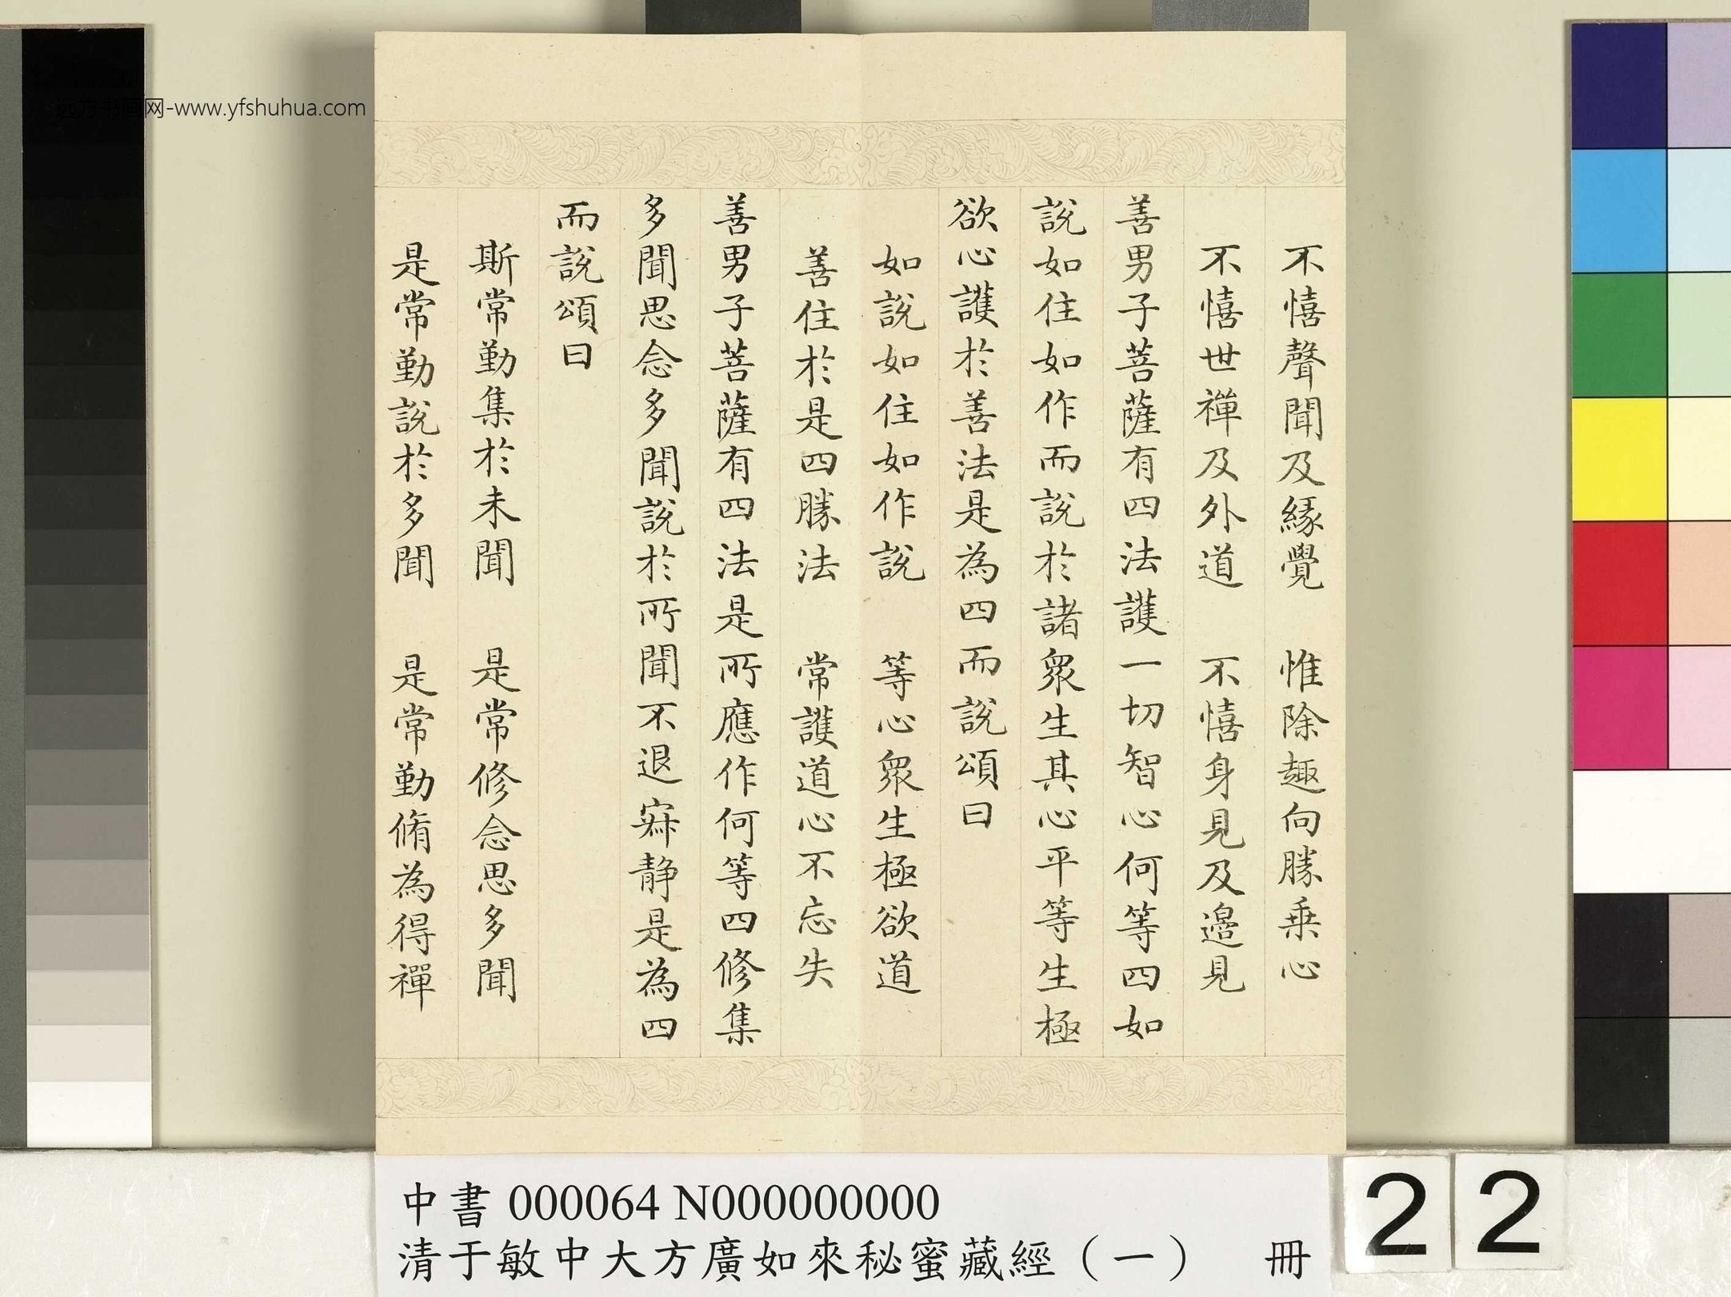 不憘聲聞及緣覺　惟除趣向勝乗心
不憘世禪及外道　不憘身見及邉見
善男子菩薩有四法護一切智心何等四如
說如住如作而說於諸衆生其心平等生極
欲心護於善法是為四而說頌曰
如說如住如作說　等心衆生極欲道
善住於是四勝法　常護道心不忘失
善男子菩薩有四法是所應作何等四修集
多聞思念多聞說於所聞不退寂静是為四
而說頌曰
斯常勤集於未聞　是常修念思多聞
是常勤說於多聞　是常勤脩為得禪
远方书画网-www.yfshuhua.com
中書 000064 N000000000
清于敏中大方廣如來秘蜜藏經（一）　冊
22